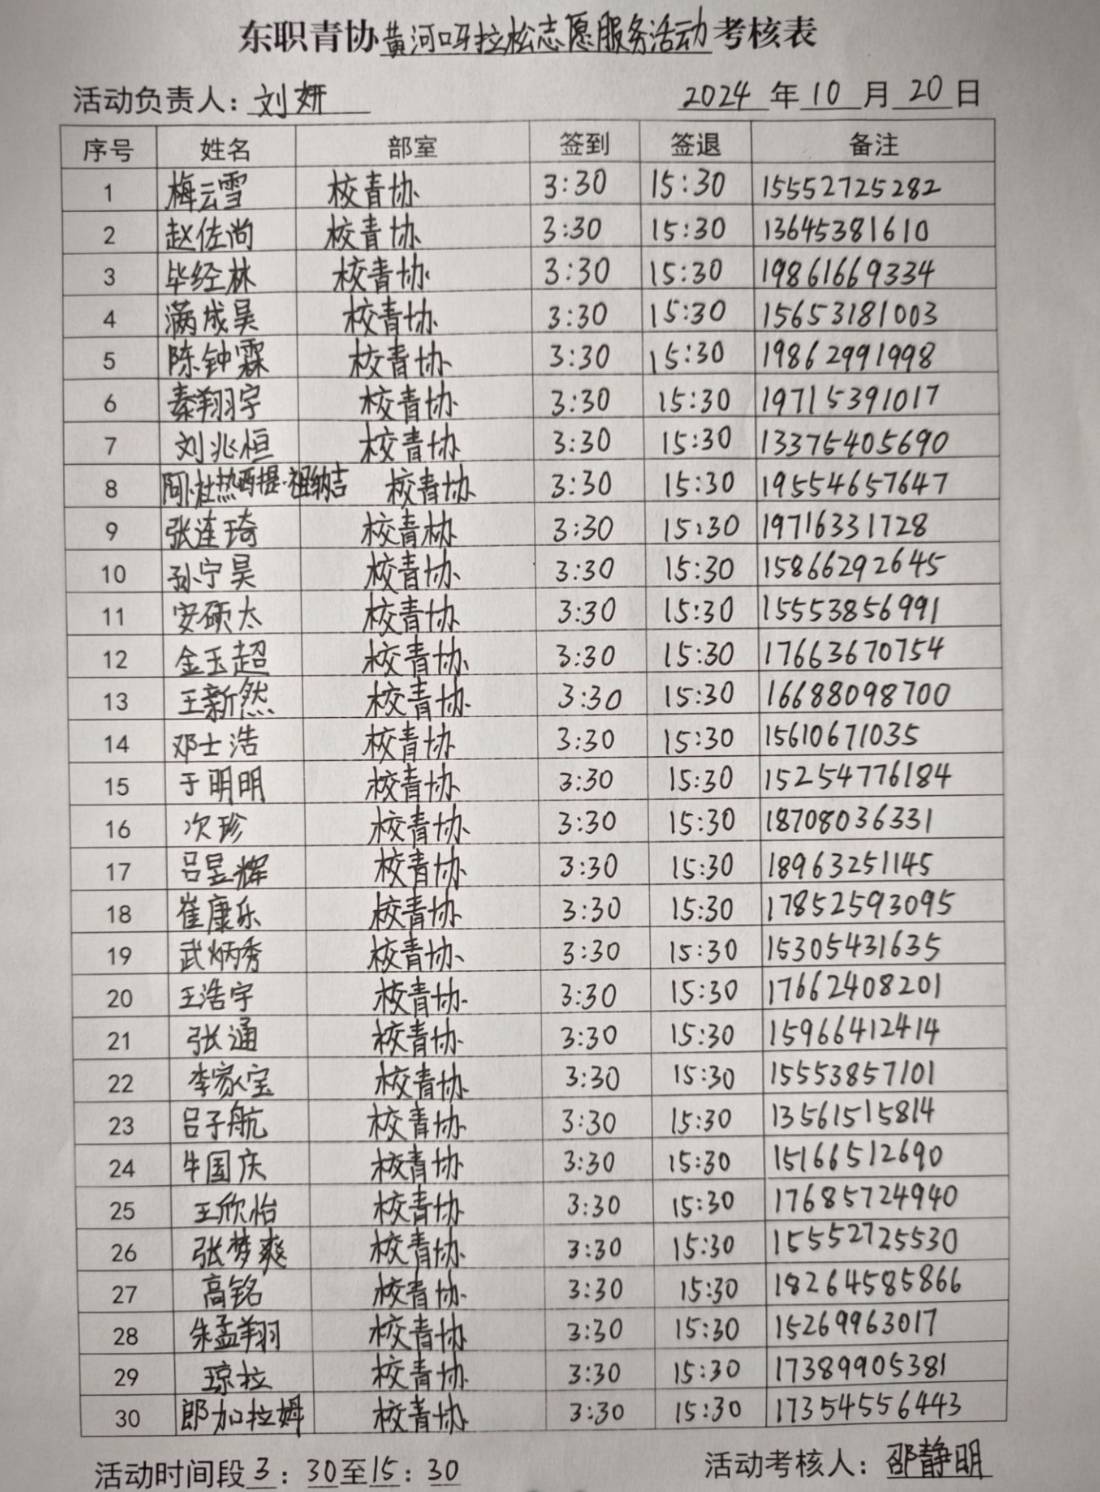 东职青协黄河口呀拉松志愿服务活动考核表
活动负责人：刘妍 2024年10月20日
序号 姓名 部室 签到 签退 备注
1 梅云雪 校青协 3:30 15:30 15552725282
2 赵佐尚 校青协 3:30 15:30 13645381610
3 毕经林 校青协 3:30 15:30 19861669334
4 满成昊 校青协 3:30 15:30 15653181003
5 陈钟霖 校青协 3:30 15:30 19862991998
6 秦翔宇 校青协 3:30 15:30 19715391017
7 刘兆恒 校青协 3:30 15:30 13375405690
8 阿杜热西提·祖纳吉 校青协 3:30 15:30 19554657647
9 张连琦 校青协 3:30 15:30 19716331728
10 孙宁昊 校青协 3:30 15:30 15866292645
11 安硕太 校青协 3:30 15:30 15553856991
12 金玉超 校青协 3:30 15:30 17663670754
13 王新然 校青协 3:30 15:30 16688098700
14 邓士浩 校青协 3:30 15:30 15610671035
15 于明明 校青协 3:30 15:30 15254776184
16 次珍 校青协 3:30 15:30 18708036331
17 吕昱辉 校青协 3:30 15:30 18963251145
18 崔康乐 校青协 3:30 15:30 17852593095
19 武炳秀 校青协 3:30 15:30 15305431635
20 王浩宇 校青协 3:30 15:30 17662408201
21 张通 校青协 3:30 15:30 15966412414
22 李家宝 校青协 3:30 15:30 15553857101
23 吕子航 校青协 3:30 15:30 13561515814
24 牛国庆 校青协 3:30 15:30 15166512690
25 王欣怡 校青协 3:30 15:30 17685724940
26 张梦爽 校青协 3:30 15:30 15552725530
27 高铭 校青协 3:30 15:30 18264585866
28 朱孟翔 校青协 3:30 15:30 15269963017
29 琼拉 校青协 3:30 15:30 17389905381
30 郎加拉姆 校青协 3:30 15:30 17354556443
活动时间段3：30至15：30 活动考核人：邵静明